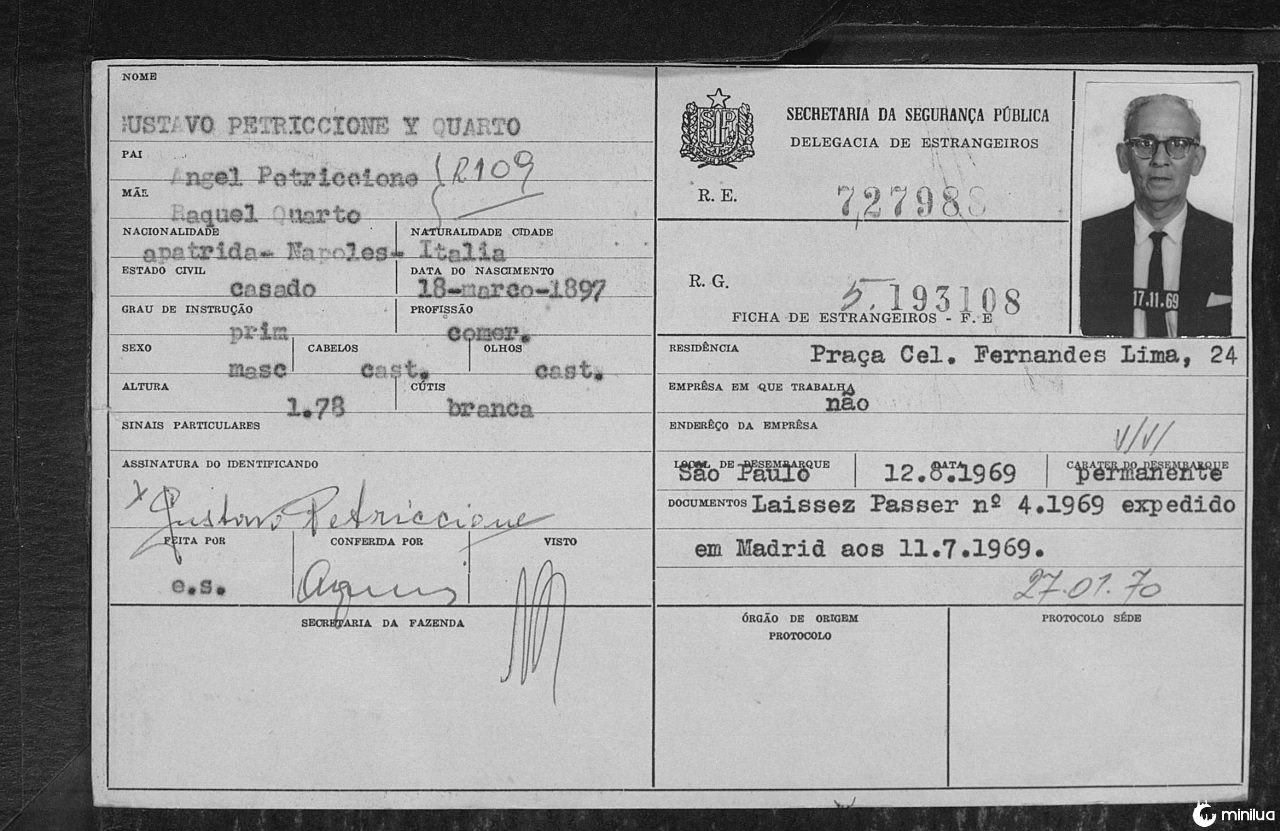 NOME
GUSTAVO PETRICCIONE Y QUARTO
PAI
Angel Petriccione
R109
MÃE
Raquel Quarto
NACIONALIDADE
NATURALIDADE CIDADE
apatrida- Napoles- Italia
ESTADO CIVIL
DATA DO NASCIMENTO
casado
18-marco-1897
GRAU DE INSTRUÇÃO
PROFISSÃO
prim
comer.
SEXO
CABELOS
OLHOS
masc
cast.
cast.
ALTURA
CÚTIS
1.78
branca
SINAIS PARTICULARES
ASSINATURA DO IDENTIFICANDO
x Gustavo Petriccione
FEITA POR
CONFERIDA POR
VISTO
e.s.
SECRETARIA DA FAZENDA
SECRETARIA DA SEGURANÇA PÚBLICA
DELEGACIA DE ESTRANGEIROS
R. E.
727988
R. G.
5.193108
FICHA DE ESTRANGEIROS - F. E
17.11.69
RESIDÊNCIA
Praça Cel. Fernandes Lima, 24
EMPRÊSA EM QUE TRABALHA
não
ENDERÊÇO DA EMPRÊSA
LOCAL DE DESEMBARQUE
DATA
CARATER DO DESEMBARQUE
São Paulo
12.8.1969
permanente
DOCUMENTOS Laissez Passer nº 4.1969 expedido
em Madrid aos 11.7.1969.
27.01.70
ÓRGÃO DE ORIGEM
PROTOCOLO
PROTOCOLO SÉDE
minilua